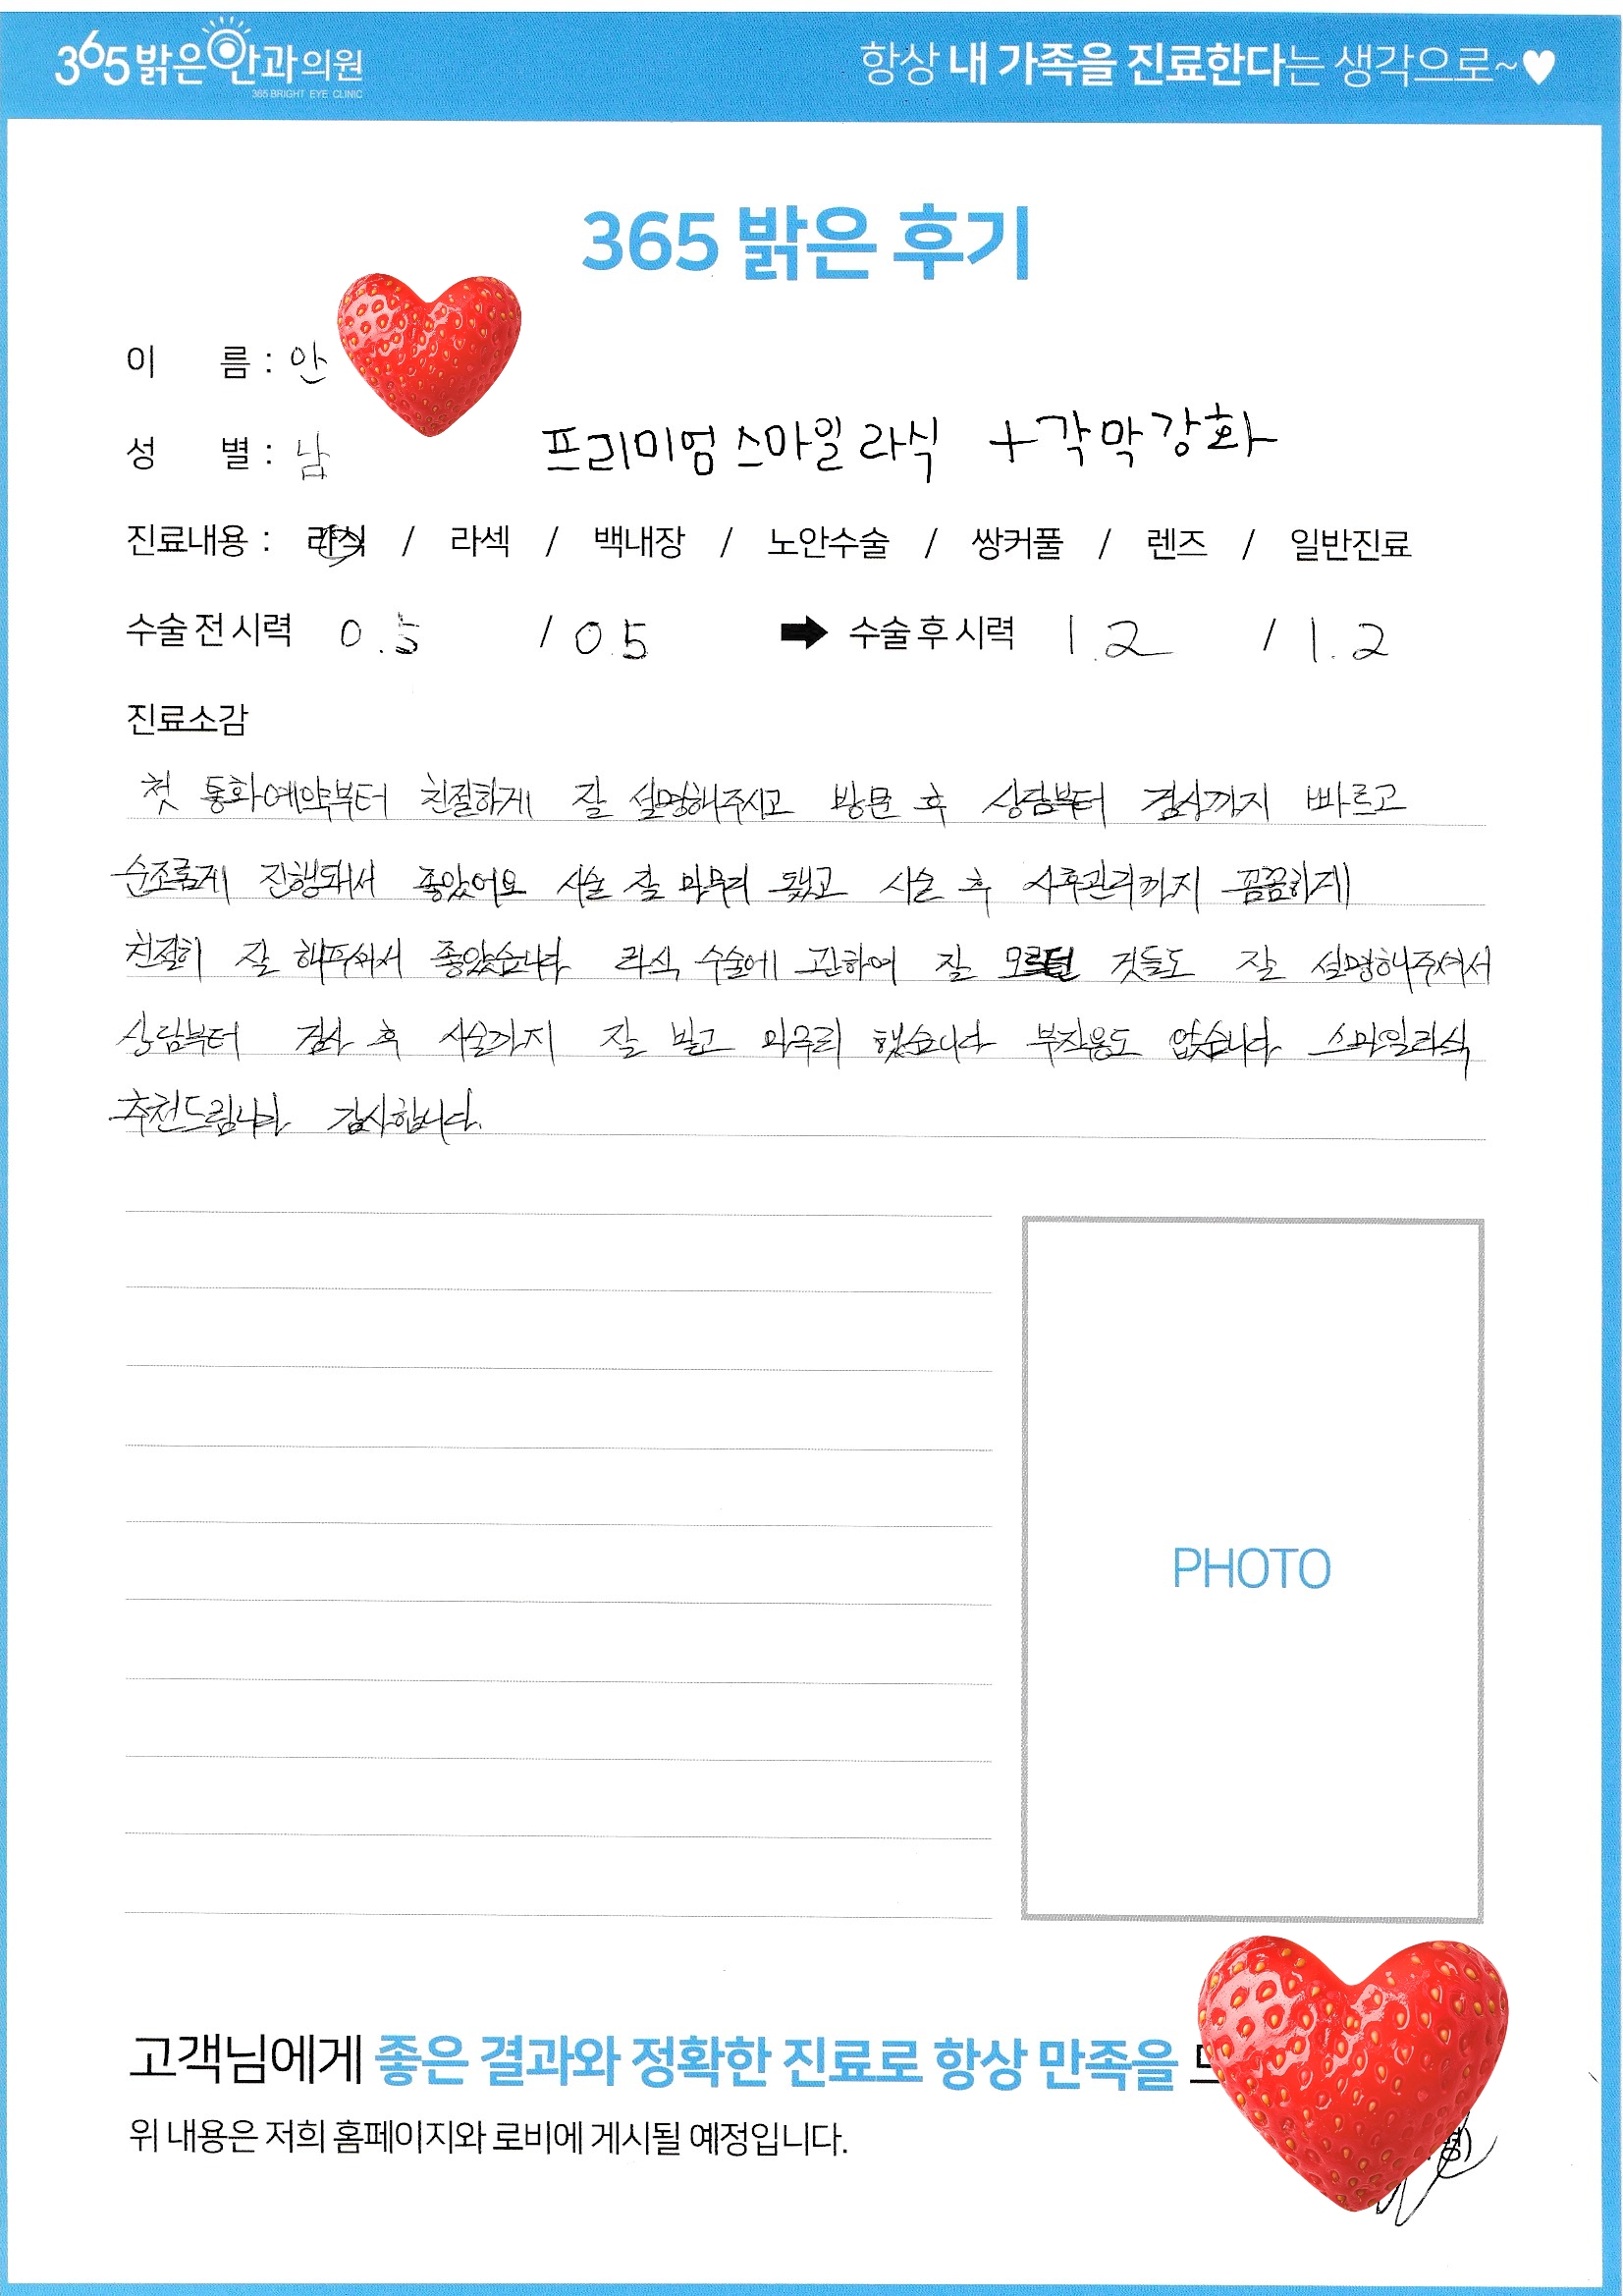 365 밝은안과의원
365 BRIGHT EYE CLINIC
항상 내 가족을 진료한다는 생각으로~♥
365 밝은 후기
이 름 : 안
성 별 : 남
프리미엄 스마일 라식 + 각막강화
진료내용 : 라식 / 라섹 / 백내장 / 노안수술 / 쌍커풀 / 렌즈 / 일반진료
수술 전 시력 0.5 / 0.5 ➡ 수술 후 시력 1.2 / 1.2
진료소감
첫 통화예약부터 친절하게 잘 설명해주시고 방문 후 상담부터 검사까지 빠르고
순조롭게 진행돼서 좋았어요 시술 잘 마무리 됐고 시술 후 사후관리까지 꼼꼼하게
친절히 잘 해주셔서 좋았습니다 라식 수술에 관하여 잘 모르던 것들도 잘 설명해주셔서
상담부터 검사 후 시술까지 잘 받고 마무리 했습니다 부작용도 없습니다 스마일라식
추천드립니다 감사합니다.
PHOTO
고객님에게 좋은 결과와 정확한 진료로 항상 만족을
위 내용은 저희 홈페이지와 로비에 게시될 예정입니다.